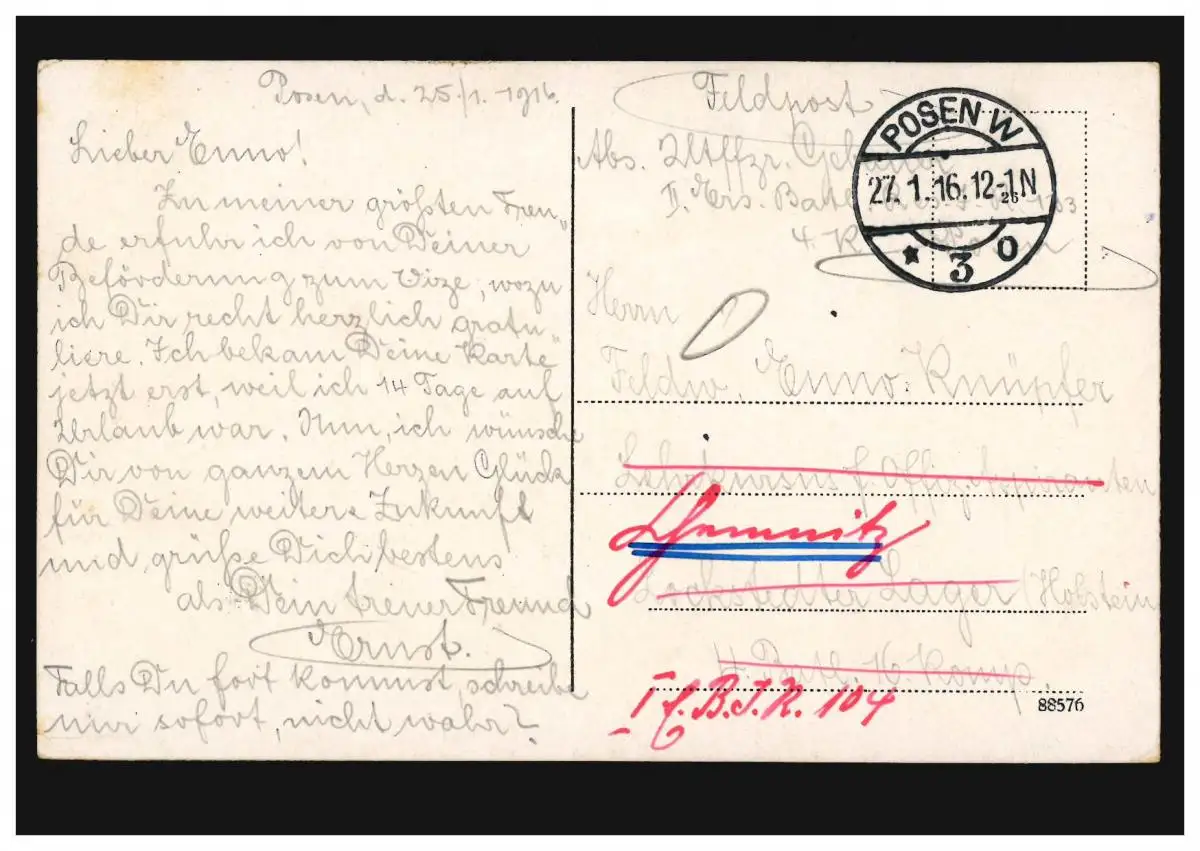 Posen, d. 25./1. 1916.
Lieber Enno!
Zu meiner größten Freu„
de erfuhr ich von Deiner
Beförderung zum Vize, wozu
ich Dir recht herzlich gratu„
liere. Ich bekam Deine Karte
jetzt erst, weil ich 14 Tage auf
Urlaub war. Nun, ich wünsche
Dir von ganzem Herzen Glück
für Deine weitere Zukunft
und grüße Dich bestens
als Dein treuer Freund
Ernst.
Falls Du fort kommst, schreibe
mir sofort, nicht wahr?
Feldpost
Abs. Utffzr.
II. Ers. Batl.
4.
POSEN W
27.1.16.12-1N
* 3 o
Herrn
Feldw. Enno Knüpfer
Lehrkursus f. Offiz. Aspiranten
Chemnitz
Lockstedter Lager /Holstein
4. Batl. 16. Komp.
I E.B.I.R. 104
88576